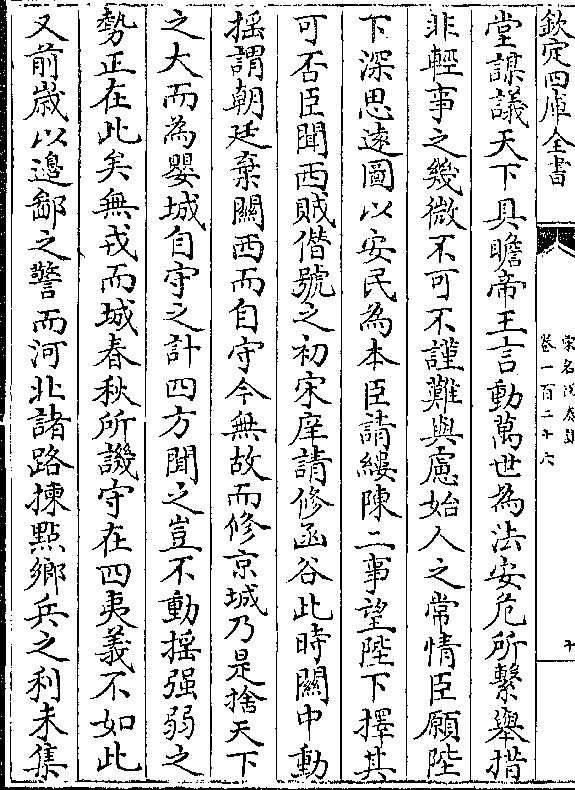 欽定四庫全書
卷一百二十六
堂謀議天下具瞻帝王言動萬世為法安危所繫舉措
非輕事之幾微不可不謹難與慮始人之常情臣願陛
下深思逺圖以安民為本臣請縷陳二事望陛下擇其
可否臣聞西賊僣號之初宋庠請修函谷此時闗中動
揺謂朝廷棄闗西而自守今無故而修京城乃是捨天下
之大而為嬰城自守之計四方聞之豈不動揺强弱之
勢正在此矣無戎而城春秋所譏守在四夷義不如此
又前嵗以邉鄙之警而河北諸路揀㸃鄉兵之利未集